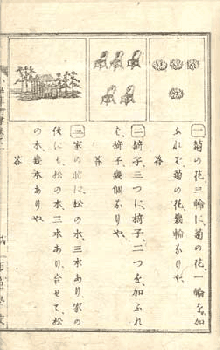 一 菊の花三輪に、菊の花一輪を、加
ふれば、菊の花幾輪なりや、
答
二 椅子、三つに、椅子、二つを、加ふれ
ば、椅子幾個なりや、
答
三 家の前に、松の木、三本あり、家の
後にも、松の木二本あり、合せて、松
の木幾本ありや、
答